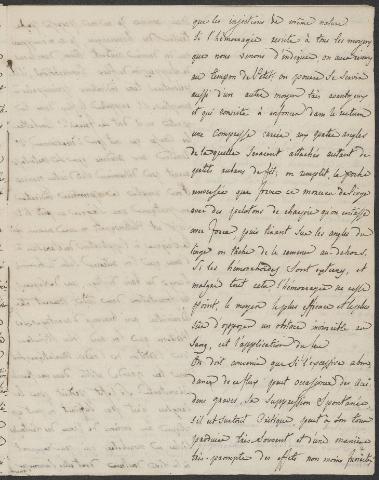 que les injections de même nature
Si l'hémorragie resiste à tous les moyens
que nous venons d'indiquer, on aura recours
au tampon de Petit. on pourra se servir
aussi d'un autre moyen très avantageux
et qui consiste à enfoncer dans le rectum
une compresse carrée aux quatre angles
de laquelle seraient attachés autant de
petits rubans de fil; on remplit la poche
renversée que forme ce morceau de linge
avec des pelotons de charpie qu'on entasse
avec force puis tirant sur les angles du
linge on tâche de le ramener au dehors.
Si les hémorrhoïdes sont externes, et
malgré tout cela l'hémorragie ne cesse
point, le moyen le plus efficace et le plus
sûr d'opposer un obstacle invincible au
sang, est l'application du feu
On doit convenir que si l'excessive abon
dance de ce flux peut occasioner des acci
dens graves, sa suppression spontanée,
s'il est surtout critique, peut à son tour
produire très souvent et d'une manière
très-prompte des effets non moins funestes